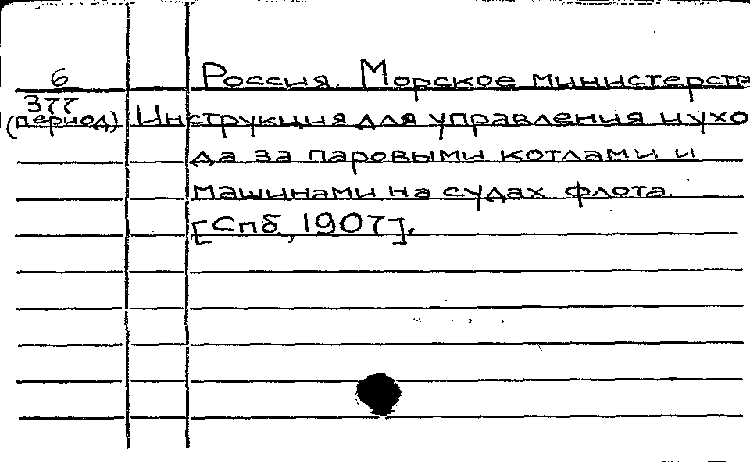 6 Россия. Морское министерств
377
(период) Инструкция для управления и ухо
да за паровыми котлами и
машинами на судах флота.
[Спб, 1907].